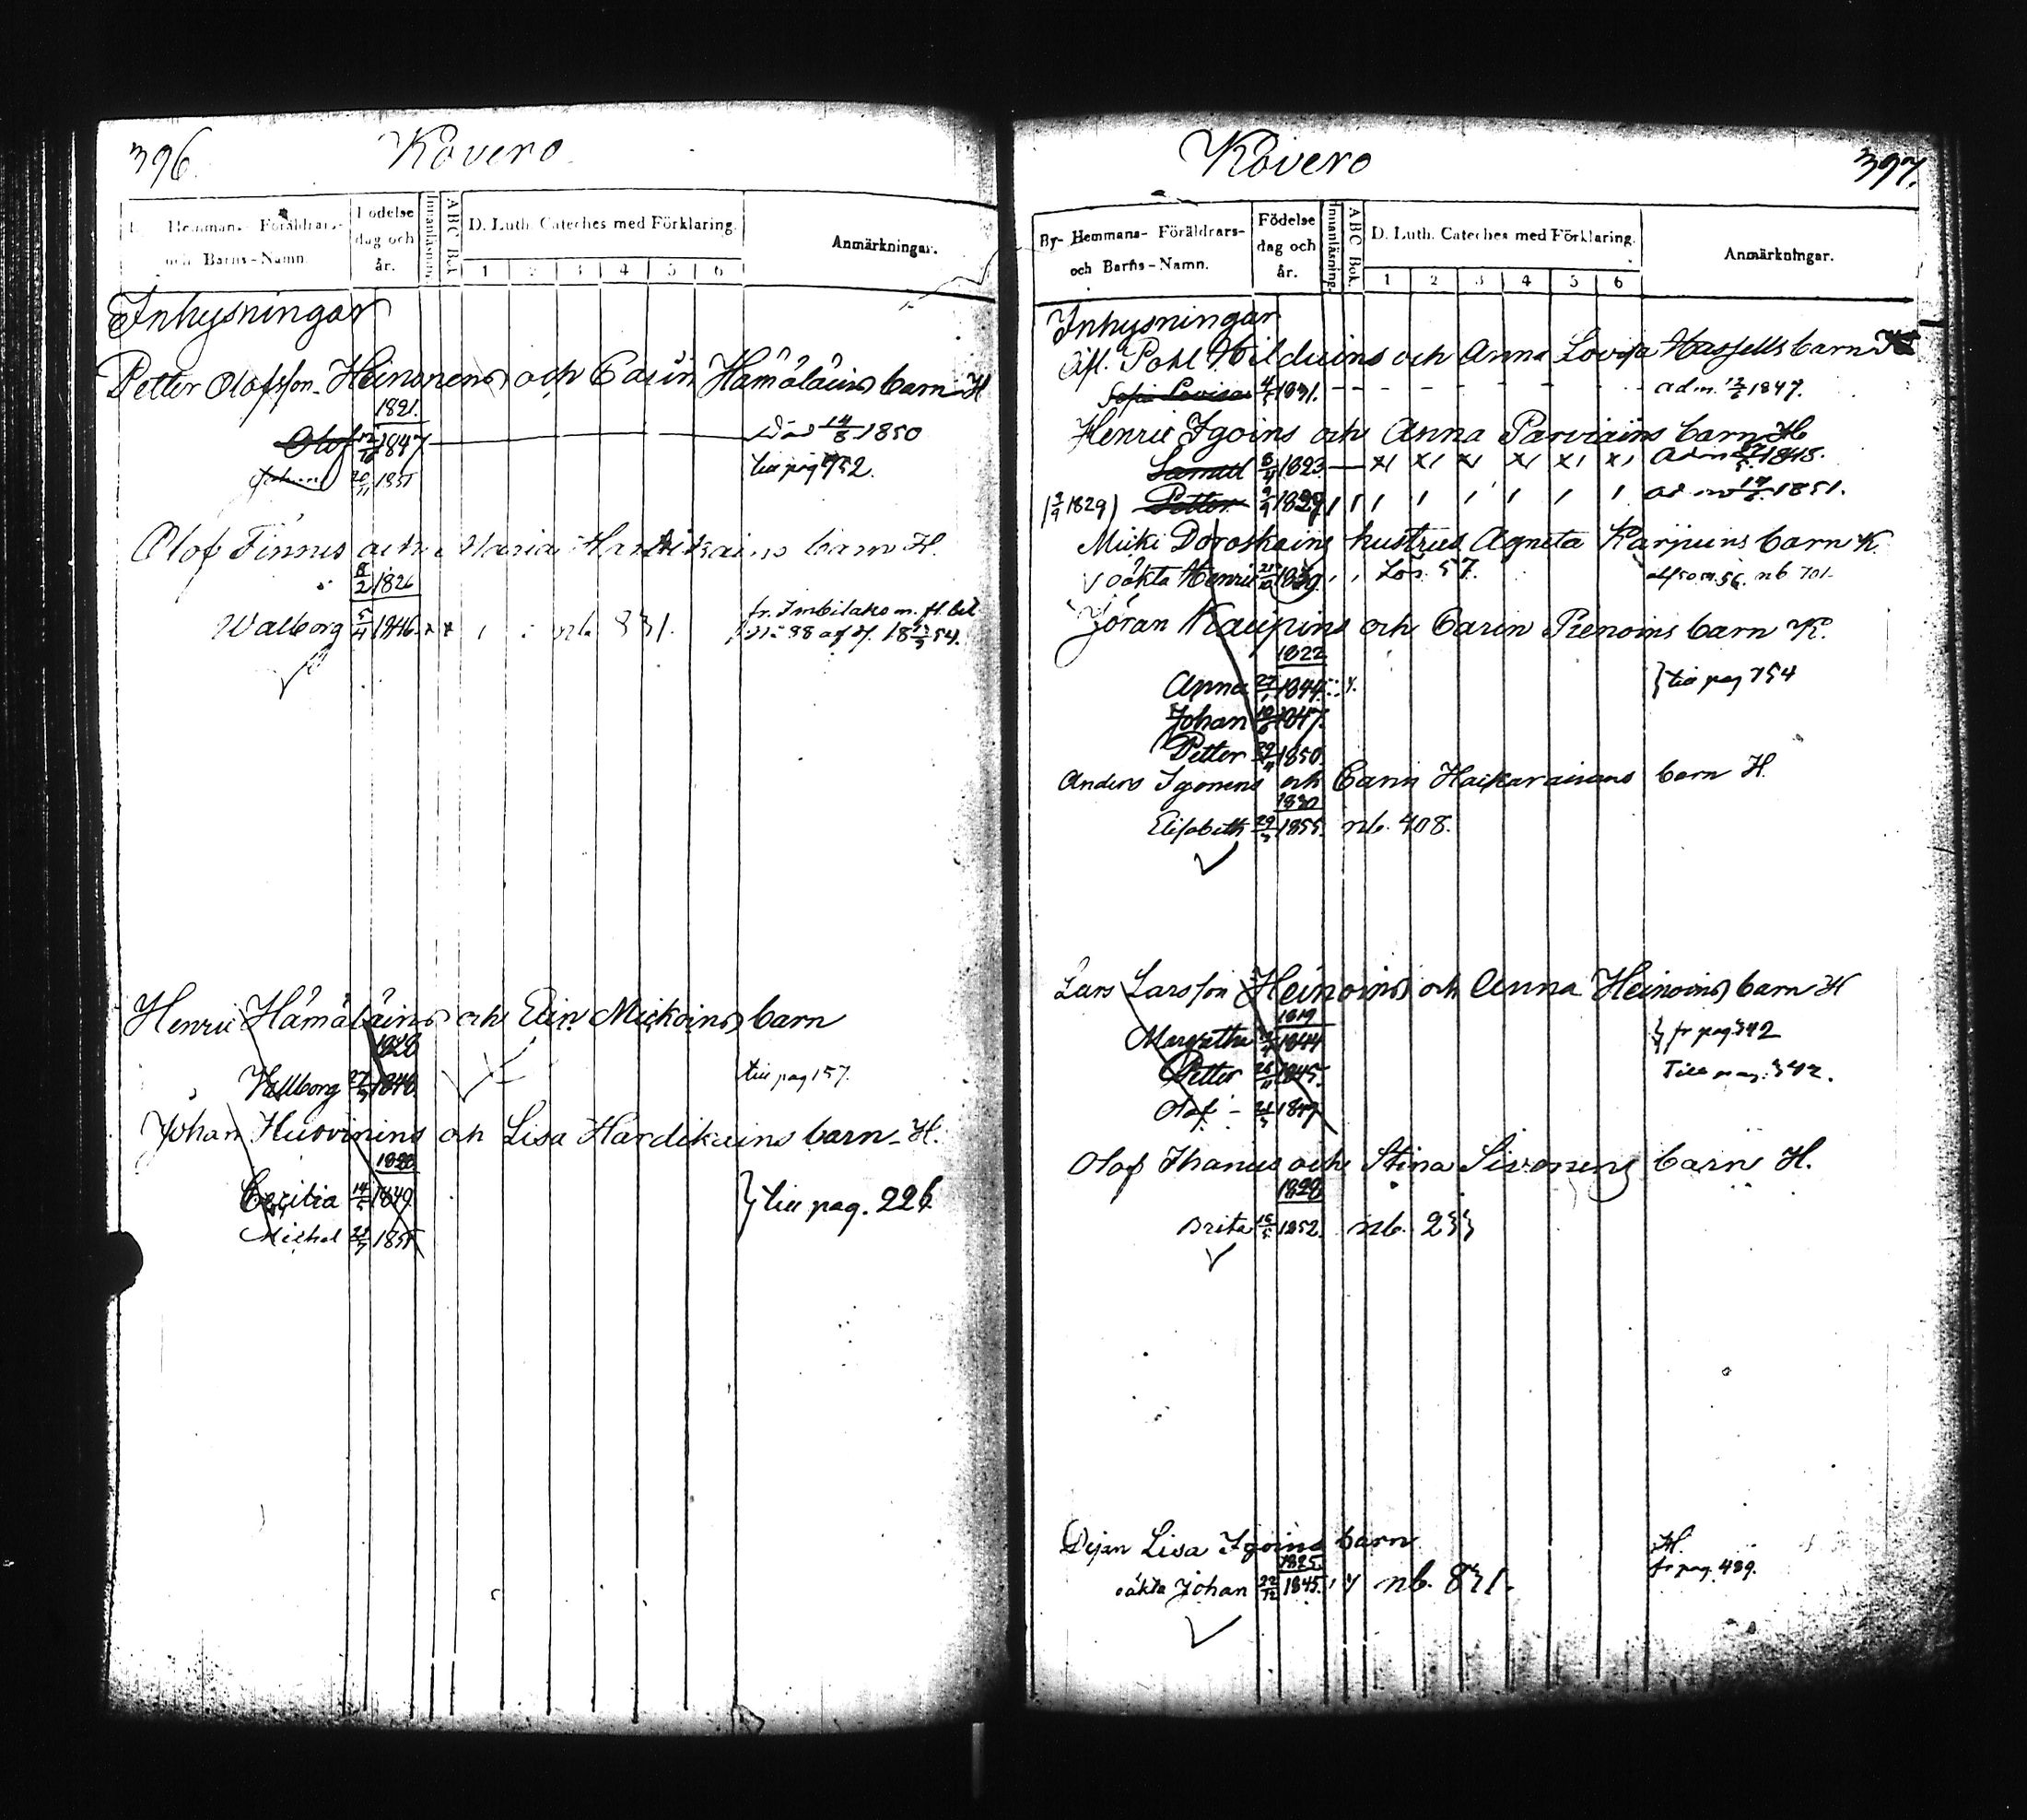 396.
Kovero
Hemmans- Föräldrars-
och Barns-Namn.
Födelse
dag och
år.
Innanläsning.
ABC Bok.
D. Luth. Cateches med Förklaring.
1 2 3 4 5 6
Anmärkningar.
Inhysningar
Petter Olofsson Heinonens och Carin Hämäläins barn H
1821.
Olof 1847 död 14/8 1850
Johan 20/11 1851 till pag 952.
Olof Finnes och Maria Hartikains barn H.
8/2 1826
Walborg 5/4 1846. nb. 831. fr. Imbilaks m. fl. bet.
N:o 88 af d. 18 54.
Henric Hämäläins och Elin Mickoins barn
1828
Wallborg 27 1848 till pag 157.
Johan Hirvinins och Lisa Hardikains barn H.
1828
Cecilia 14/5 1849 } till pag. 226
Michel 1851
397.
Kovero
By- Hemmans- Föräldrars-
och Barns-Namn.
Födelse
dag och
år.
Innanläsning.
ABC Bok.
D. Luth. Cateches med Förklaring.
1 2 3 4 5 6
Anmärkningar.
Inhysningar
Afl. Pahl Hilduins och Anna Lovisa Hassells barn
Sofia Lovisa 1831. adm. 1847.
Henric Igoins och Anna Parviains barn H
Samuel 8/4 1823 adm 1848.
(2/9 1829) Petter 2/9 1829 adm 1851.
Micki Doroskains hustrus Agneta Karpins barn K.
oäkta Henric 1839. Lös. 57. nb 701.
Jöran Kaupins och Carin Renoins barn K.
1822
Anna 27 1844 } till pag 754
Johan 1847.
Petter 1850.
Anders Igonens och Carin Hackarainens barn H.
1830
Elisabeth 29 1855. nb. 408.
Lars Larsson Heinoins och Anna Heinoins barn H
1819
Margretha 1844 } fr pag 342
Petter 26/11 1845. Till pag. 342.
Olof 21 1849
Olof Ihanus och Stina Sivonens barn H.
1828
Brita 15/5 1852. nb. 233
Pigan Lisa Igoins barn H.
1825.
oäkta Johan 22/12 1845. nb. 831. fr pag. 489.